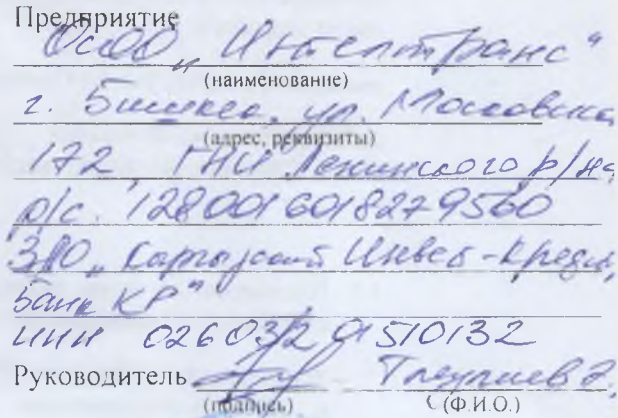 Предприятие
ОсОО „Интелтранс“
(наименование)
г. Бишкек, ул. Московская
(адрес, реквизиты)
172, ГНИ Ленинского р/на
р/с. 1280016018279560
ЗАО „ Инвест-Кредит
Банк КР"
ИНН 02603201510132
Руководитель
(подпись) (Ф.И.О.)